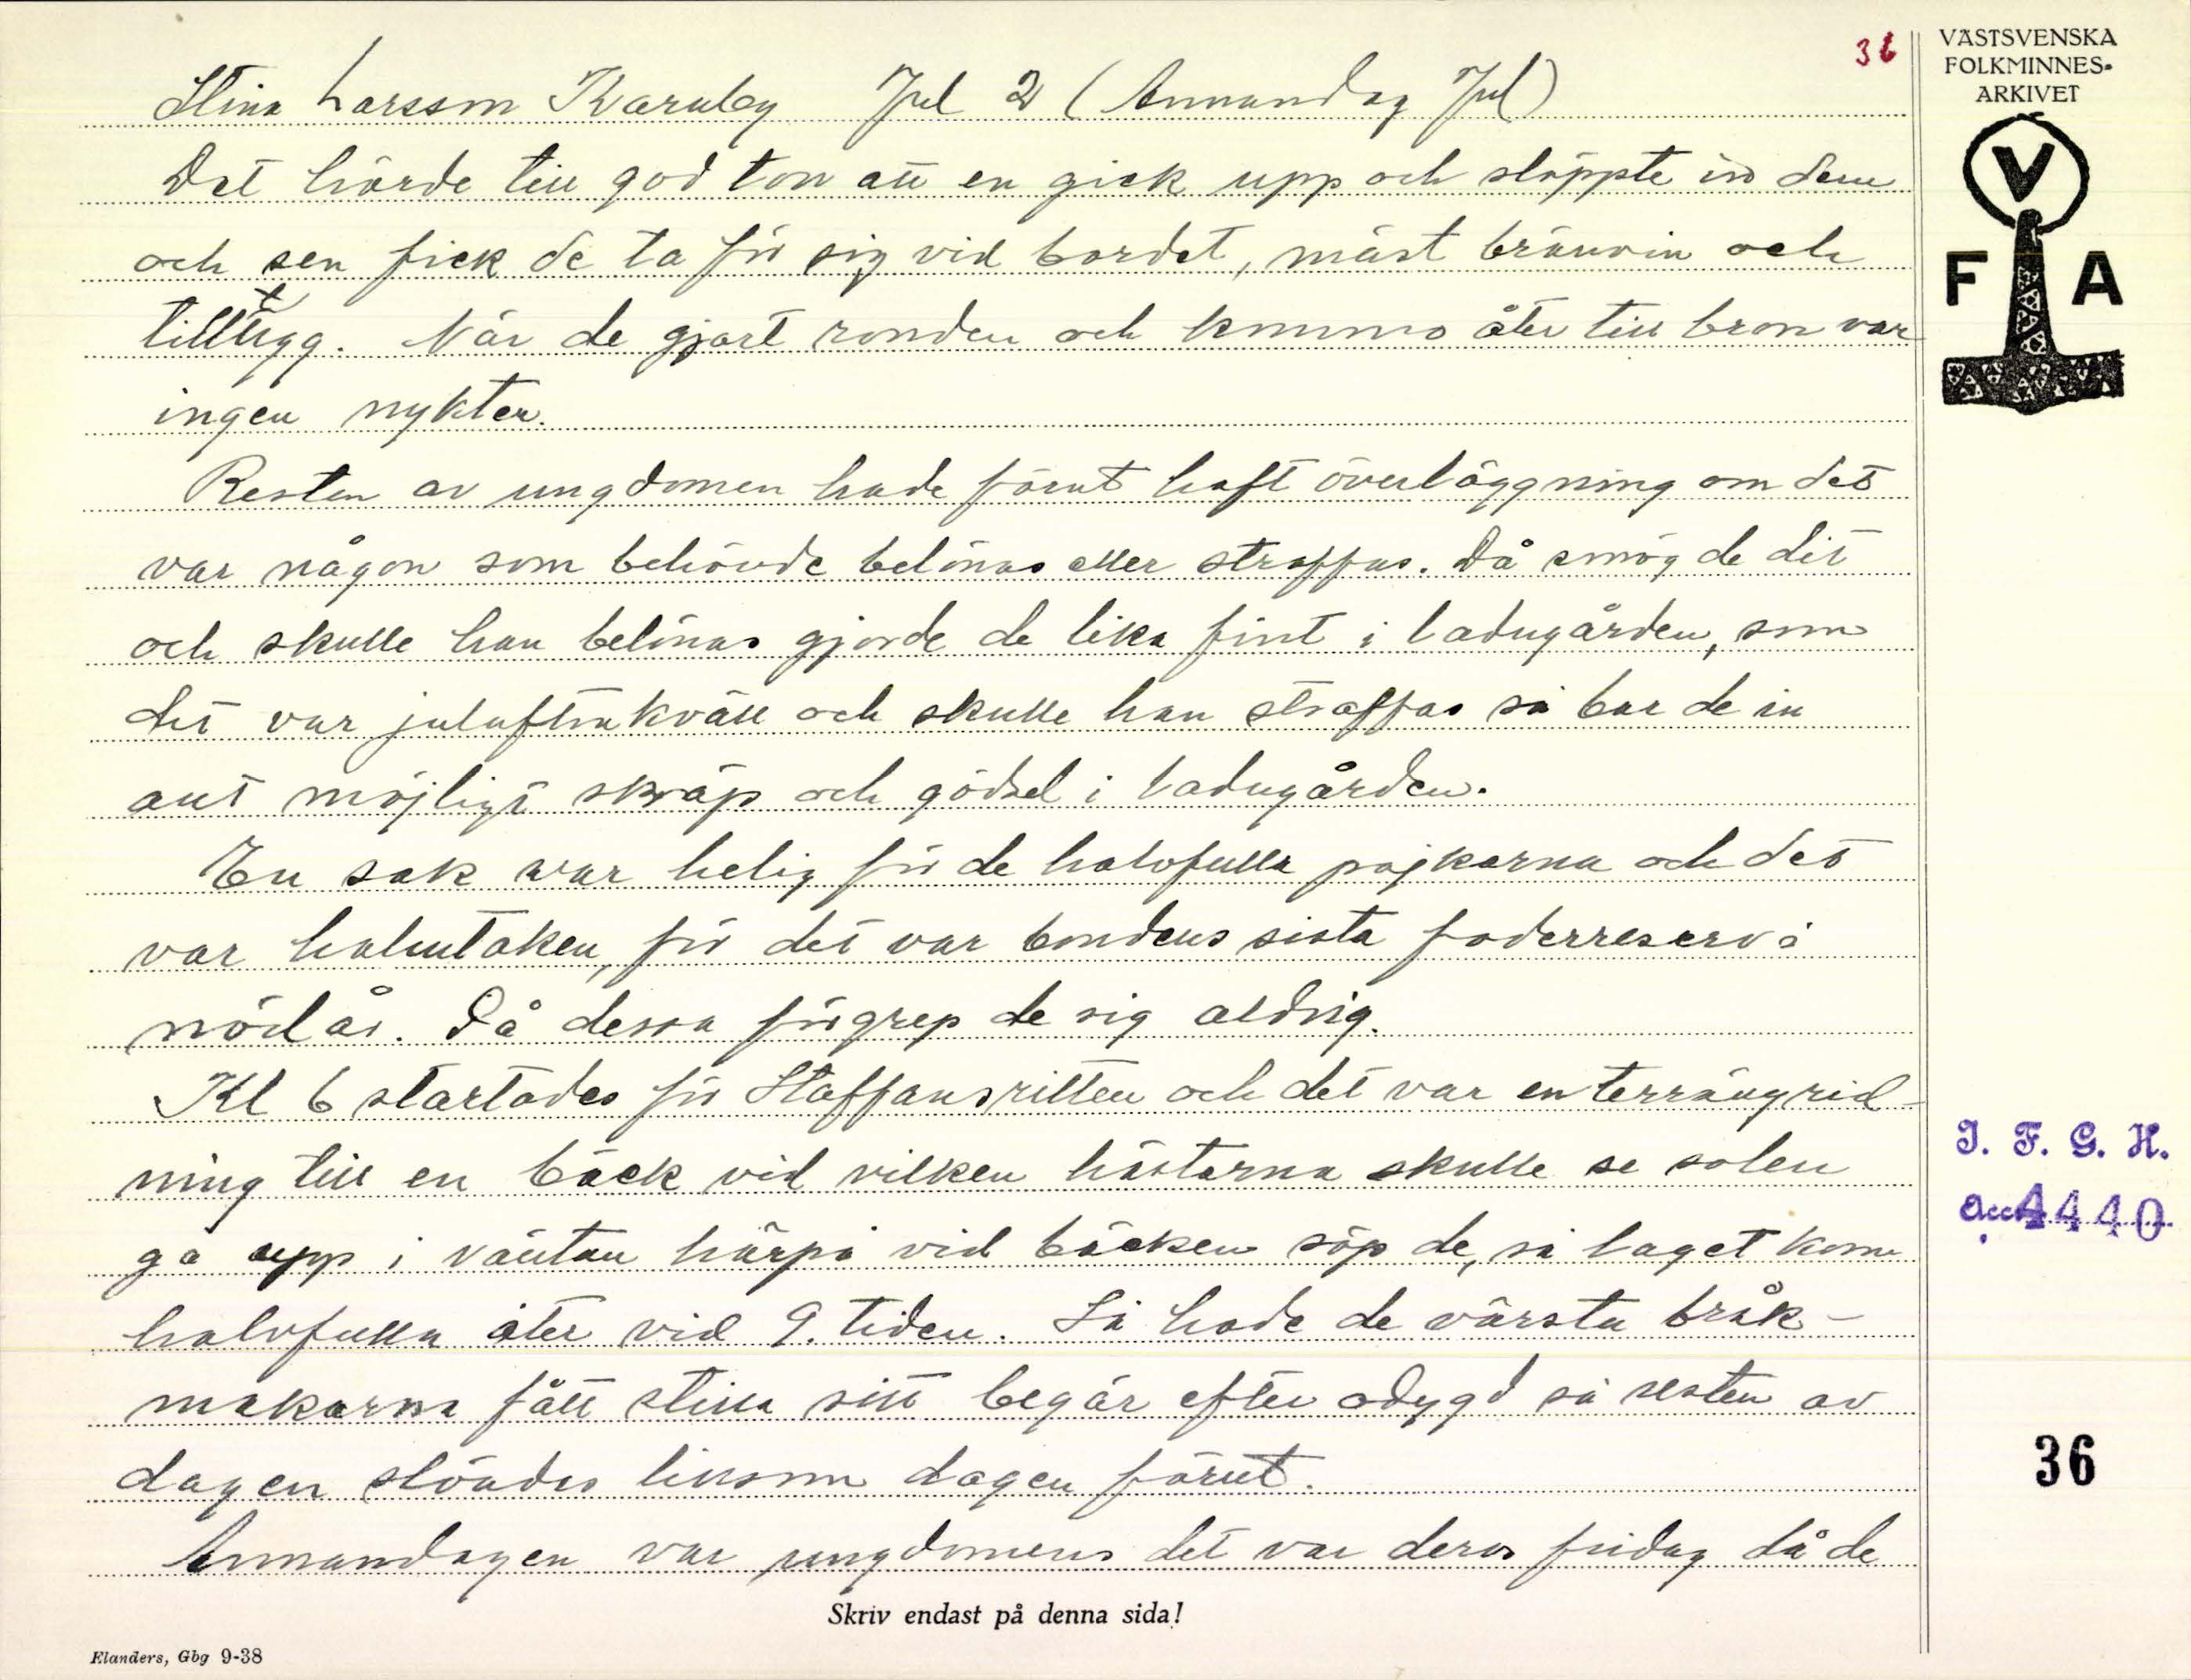 36
VÄSTSVENSKA
FOLKMINNES-
ARKIVET
V
F A
Stina Larsson Kärraby Jul 2 (Annandag Jul)
Det hörde till god ton att en gick upp och släppte in dem
och sen fick de ta för sig vid bordet, mäst brännvin och
tilltugg. När de gjort ronden och kommo åter till bron var
ingen nykter.
Resten av ungdomen hade förut haft överläggning om det
var någon som behövde belönas eller straffas. Då smög de dit
och skulle han belönas gjorde de lika fint i ladugården, som
det var julaftnakväll och skulle han straffas så bar de in
allt möjligt skräp och gödsel i ladugården.
En sak var helig för de halvfulla pojkarna och det
var halmtaken, för det var bondens sista foderreserv i
nödår. På dessa förgrep de sig aldrig.
Kl 6 startades för Staffansritten och det var en terrängrid-
ning till en bäck vid vilken hästarna skulle se solen
gå upp i väntan härpå vid bäcken söp de, så laget kom
halvfulla åter vid 9. tiden. Så hade de värsta bråk-
makarna fått stilla sitt begär efter odygd så resten av
dagen slöades liksom dagen förut.
Annandagen var ungdomens det var deras fridag då de
Skriv endast på denna sida!
Elanders, Gbg 9-38
I. F. G. H.
Acc. 4440
36